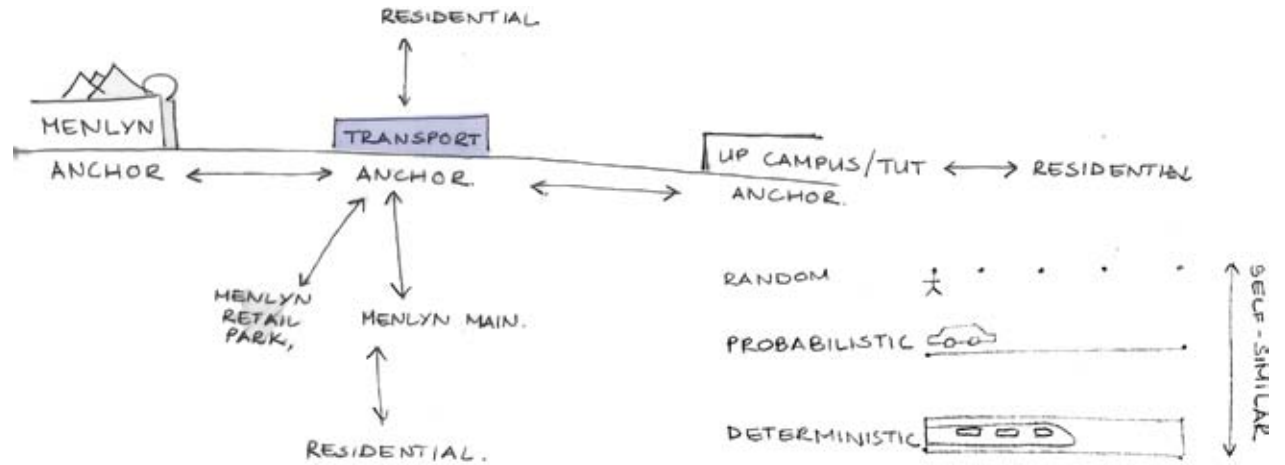 RESIDENTIAL
MENLYN
TRANSPORT
UP CAMPUS/TUT
RESIDENTIAL
ANCHOR
ANCHOR.
ANCHOR.
MENLYN
RETAIL
PARK,
MENLYN MAIN.
RESIDENTIAL.
RANDOM
PROBABILISTIC
DETERMINISTIC
SELF-SIMILAR